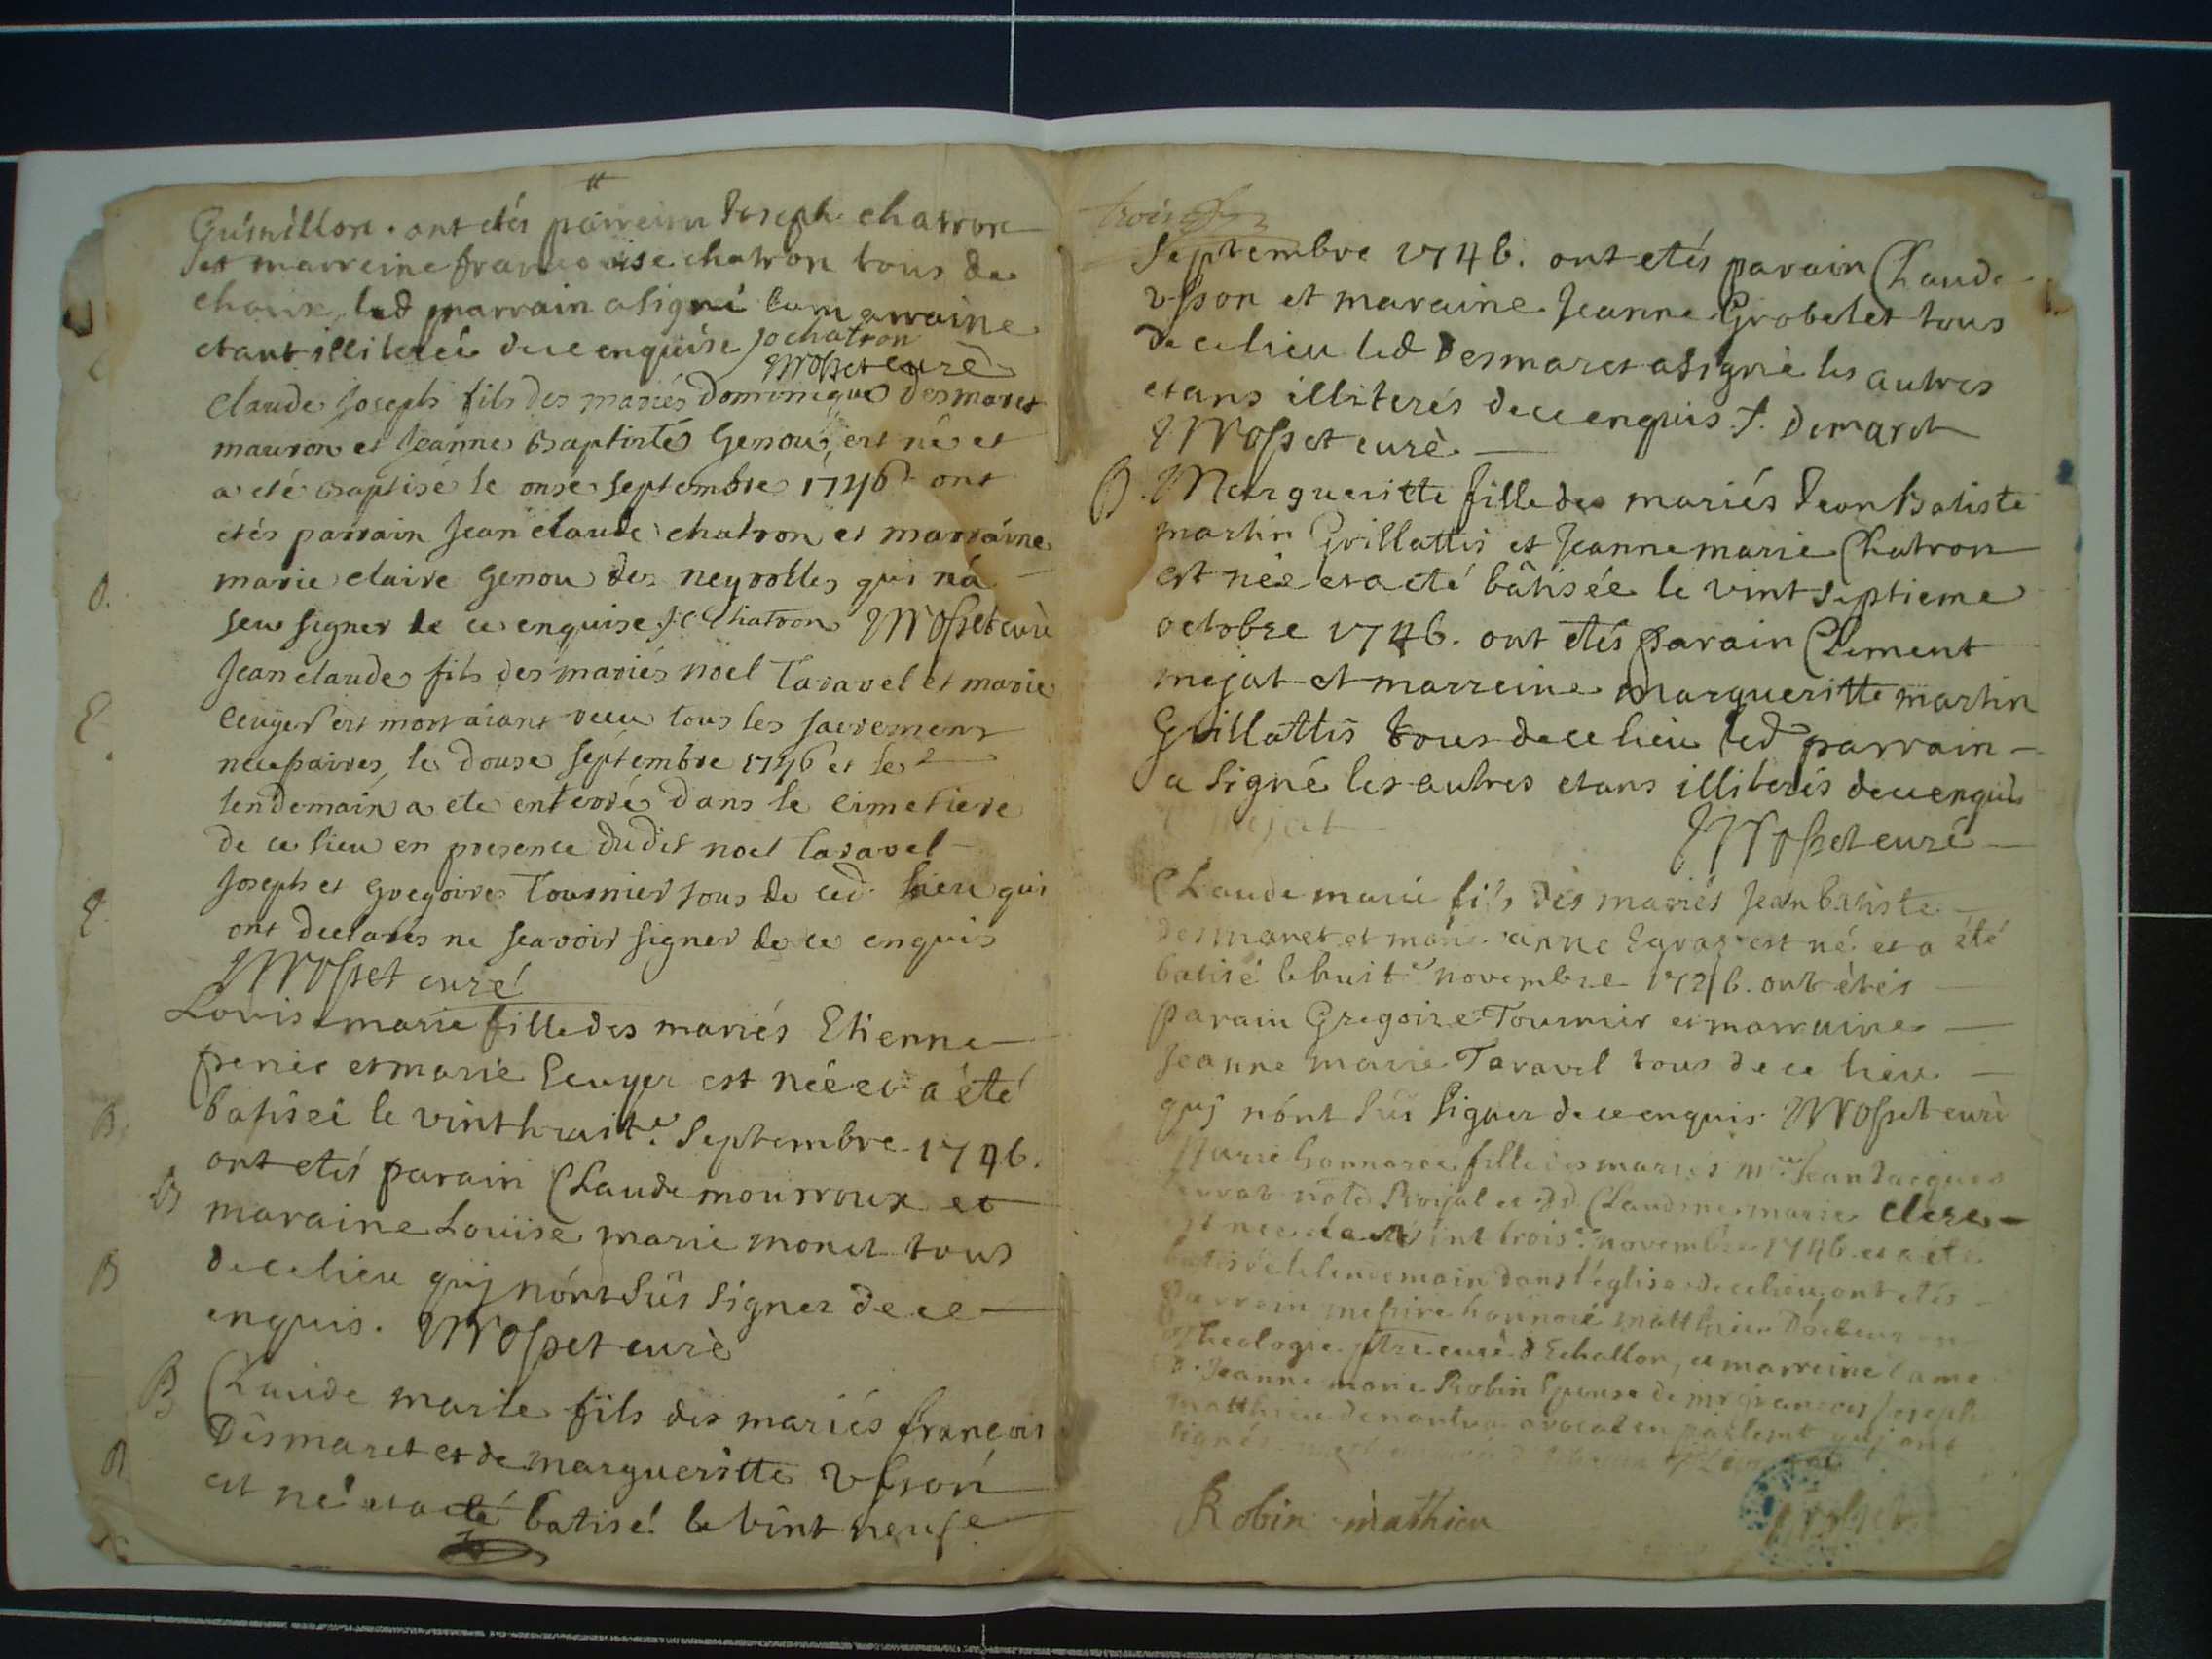 ont etés parrein Joseph chatron
et marreine francoise chatron tous de
led parrain a signé la marraine
etant illiterée de ce enquise jo chatron
Mosset curé
Claude Joseph fils des mariés Dominique Desmaret
mauron et Jeanne Baptiste Genou, est né et
a eté Baptisé le onse septembre 1746 ont
etés parrain Jean claude chatron et marraine
marie claire Genou des neyrolles qui n'a
seu signer de ce enquise J C Chatron Mosset curé
Jean claude fils des mariés noël Taravel et marie
est mort aiant receu tous les sacremens
necessaires, le douse septembre 1746 et le
lendemain a ete enterré dans le cimetiere
de ce lieu en presence dudit noel taravel
Joseph et Gregoire Tournier tous de ced. lieu qui
ont declarés ne scavoir signer de ce enquis
Mosset curé
Louise marie fille des mariés Etienne
et marie Ecuyer est née et a été
batisée le vinthuit.e septembre 1746.
ont etés parain Claude mourroux et
maraine Louise marie monet tous
de ce lieu quj nónt sûs signer de ce
enquis. Mosset curè
B Claude marie fils des mariés françois
Desmaret et de margueritte Usson
est né et a eté batisé le vint neuf.e
trois
Septembre 1746. ont etés parain Claude
Usson et maraine Jeanne Grobelet tous
de ce lieu led Desmaret a signé les autres
etans illiterés de ce enquis. f. Demaret
Mosset curè
B. Margueritte fille des mariés Jean Batiste
martin Guillattis et Jeanne marie Chatron
est née et a eté bâtisée le vint septieme
octobre 1746. ont etés parain Clement
mejat et marreine margueritte martin
Guillattis tous de ce lieu led parrain
a signé les autres etans illiterés de ce enquis
C mejat
Mosset curé
Claude marie fils des mariés Jean batiste
desmaret et marie anne est né et a été
batisé le huit.e novembre 1746. ont étés
parain Gregoire Tournier et marraine
Jeanne marie Taravel tous de ce lieu
quj nónt sûs signer de ce enquis Mosset curè
fille des mariés Jean Jacques
Roijal et de Claudine marie
est née le vint trois.e novembre 1746 et a été
batisée le lendemain dans l'église de ce lieu, ont etés
parrein messire honnoré matthieu Docteur en
theologie ptre curé d Echallon, et marreine dame
Jeanne marie Robin Epouse de mr françois Joseph
matthieu de nantua avocat en parlemt quj ont
signés
Robin mathieu